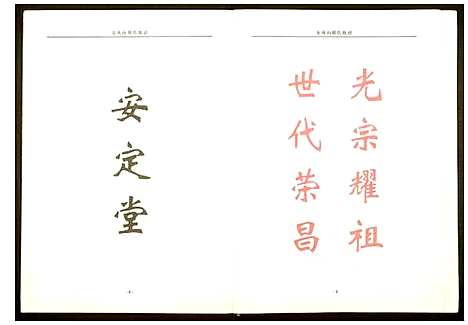 光宗耀祖
世代荣昌
安定堂